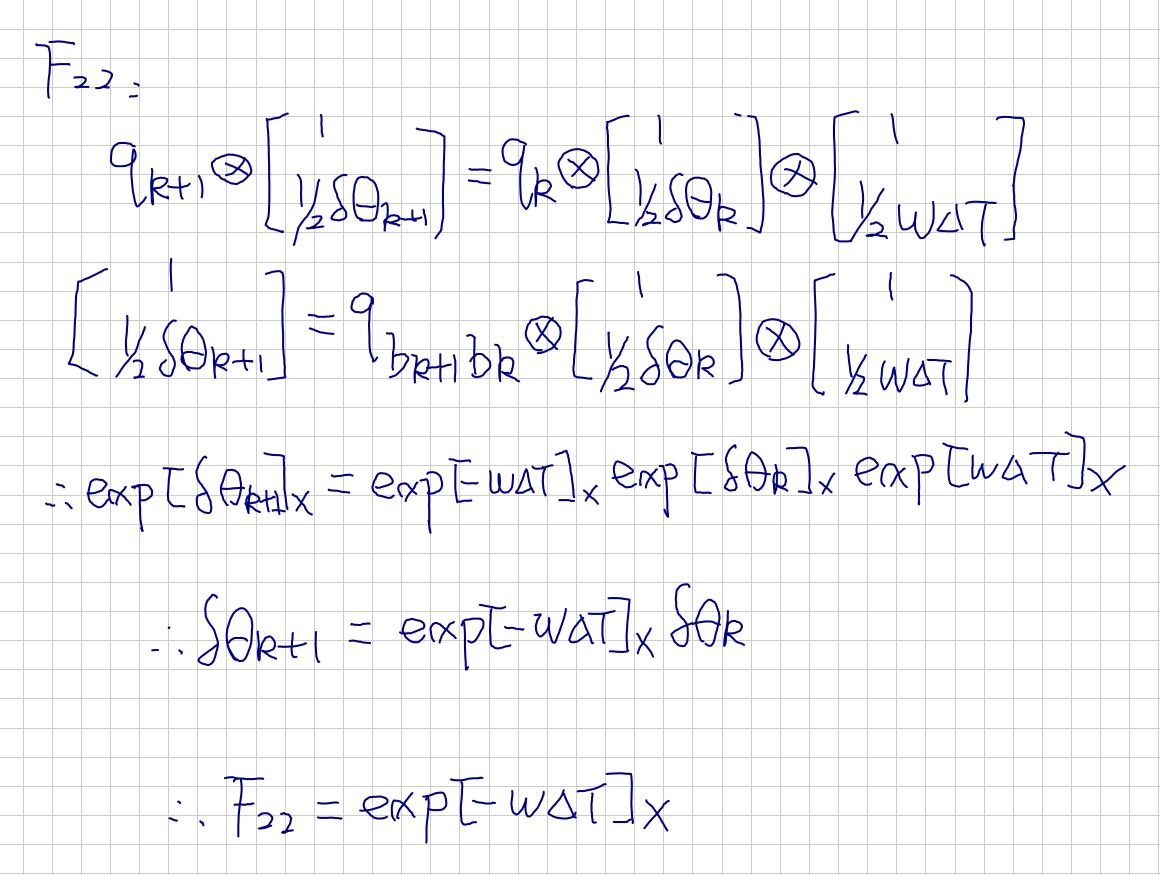 F₂₂:
q_{k+1} ⊗ [1; ½δθ_{k+1}] = q_k ⊗ [1; ½δθ_k] ⊗ [1; ½wΔT]
[1; ½δθ_{k+1}] = q_{b_{k+1}b_k} ⊗ [1; ½δθ_k] ⊗ [1; ½wΔT]
∴ exp[δθ_{k+1}]ₓ = exp[-wΔT]ₓ exp[δθ_k]ₓ exp[wΔT]ₓ
∴ δθ_{k+1} = exp[-wΔT]ₓ δθ_k
∴ F₂₂ = exp[-wΔT]ₓ